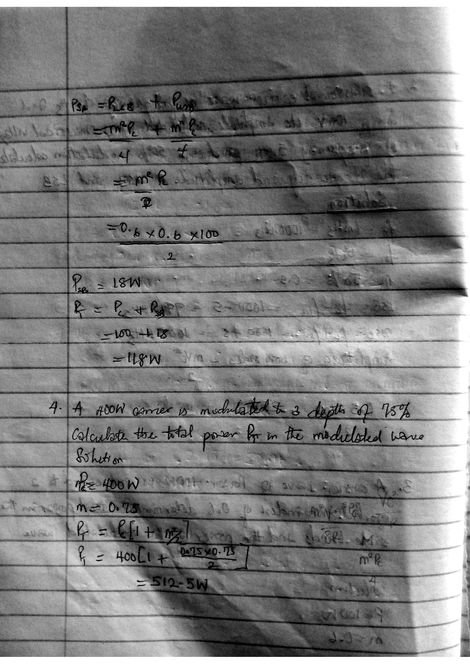 PSB = PLSB + PUSB
= m²Pc/4 + m²Pc/4
= m²Pc/2
= 0.6 × 0.6 × 100 / 2
PSB = 18W
PT = Pc + PSB
= 100 + 18
= 118W
4. A 400W carrier is modulated to a depth of 75%
Calculate the total power PT in the modulated wave
Solution
Pc = 400W
m = 0.75
PT = Pc[1 + m²/2]
PT = 400[1 + 0.75×0.75/2]
= 512.5W